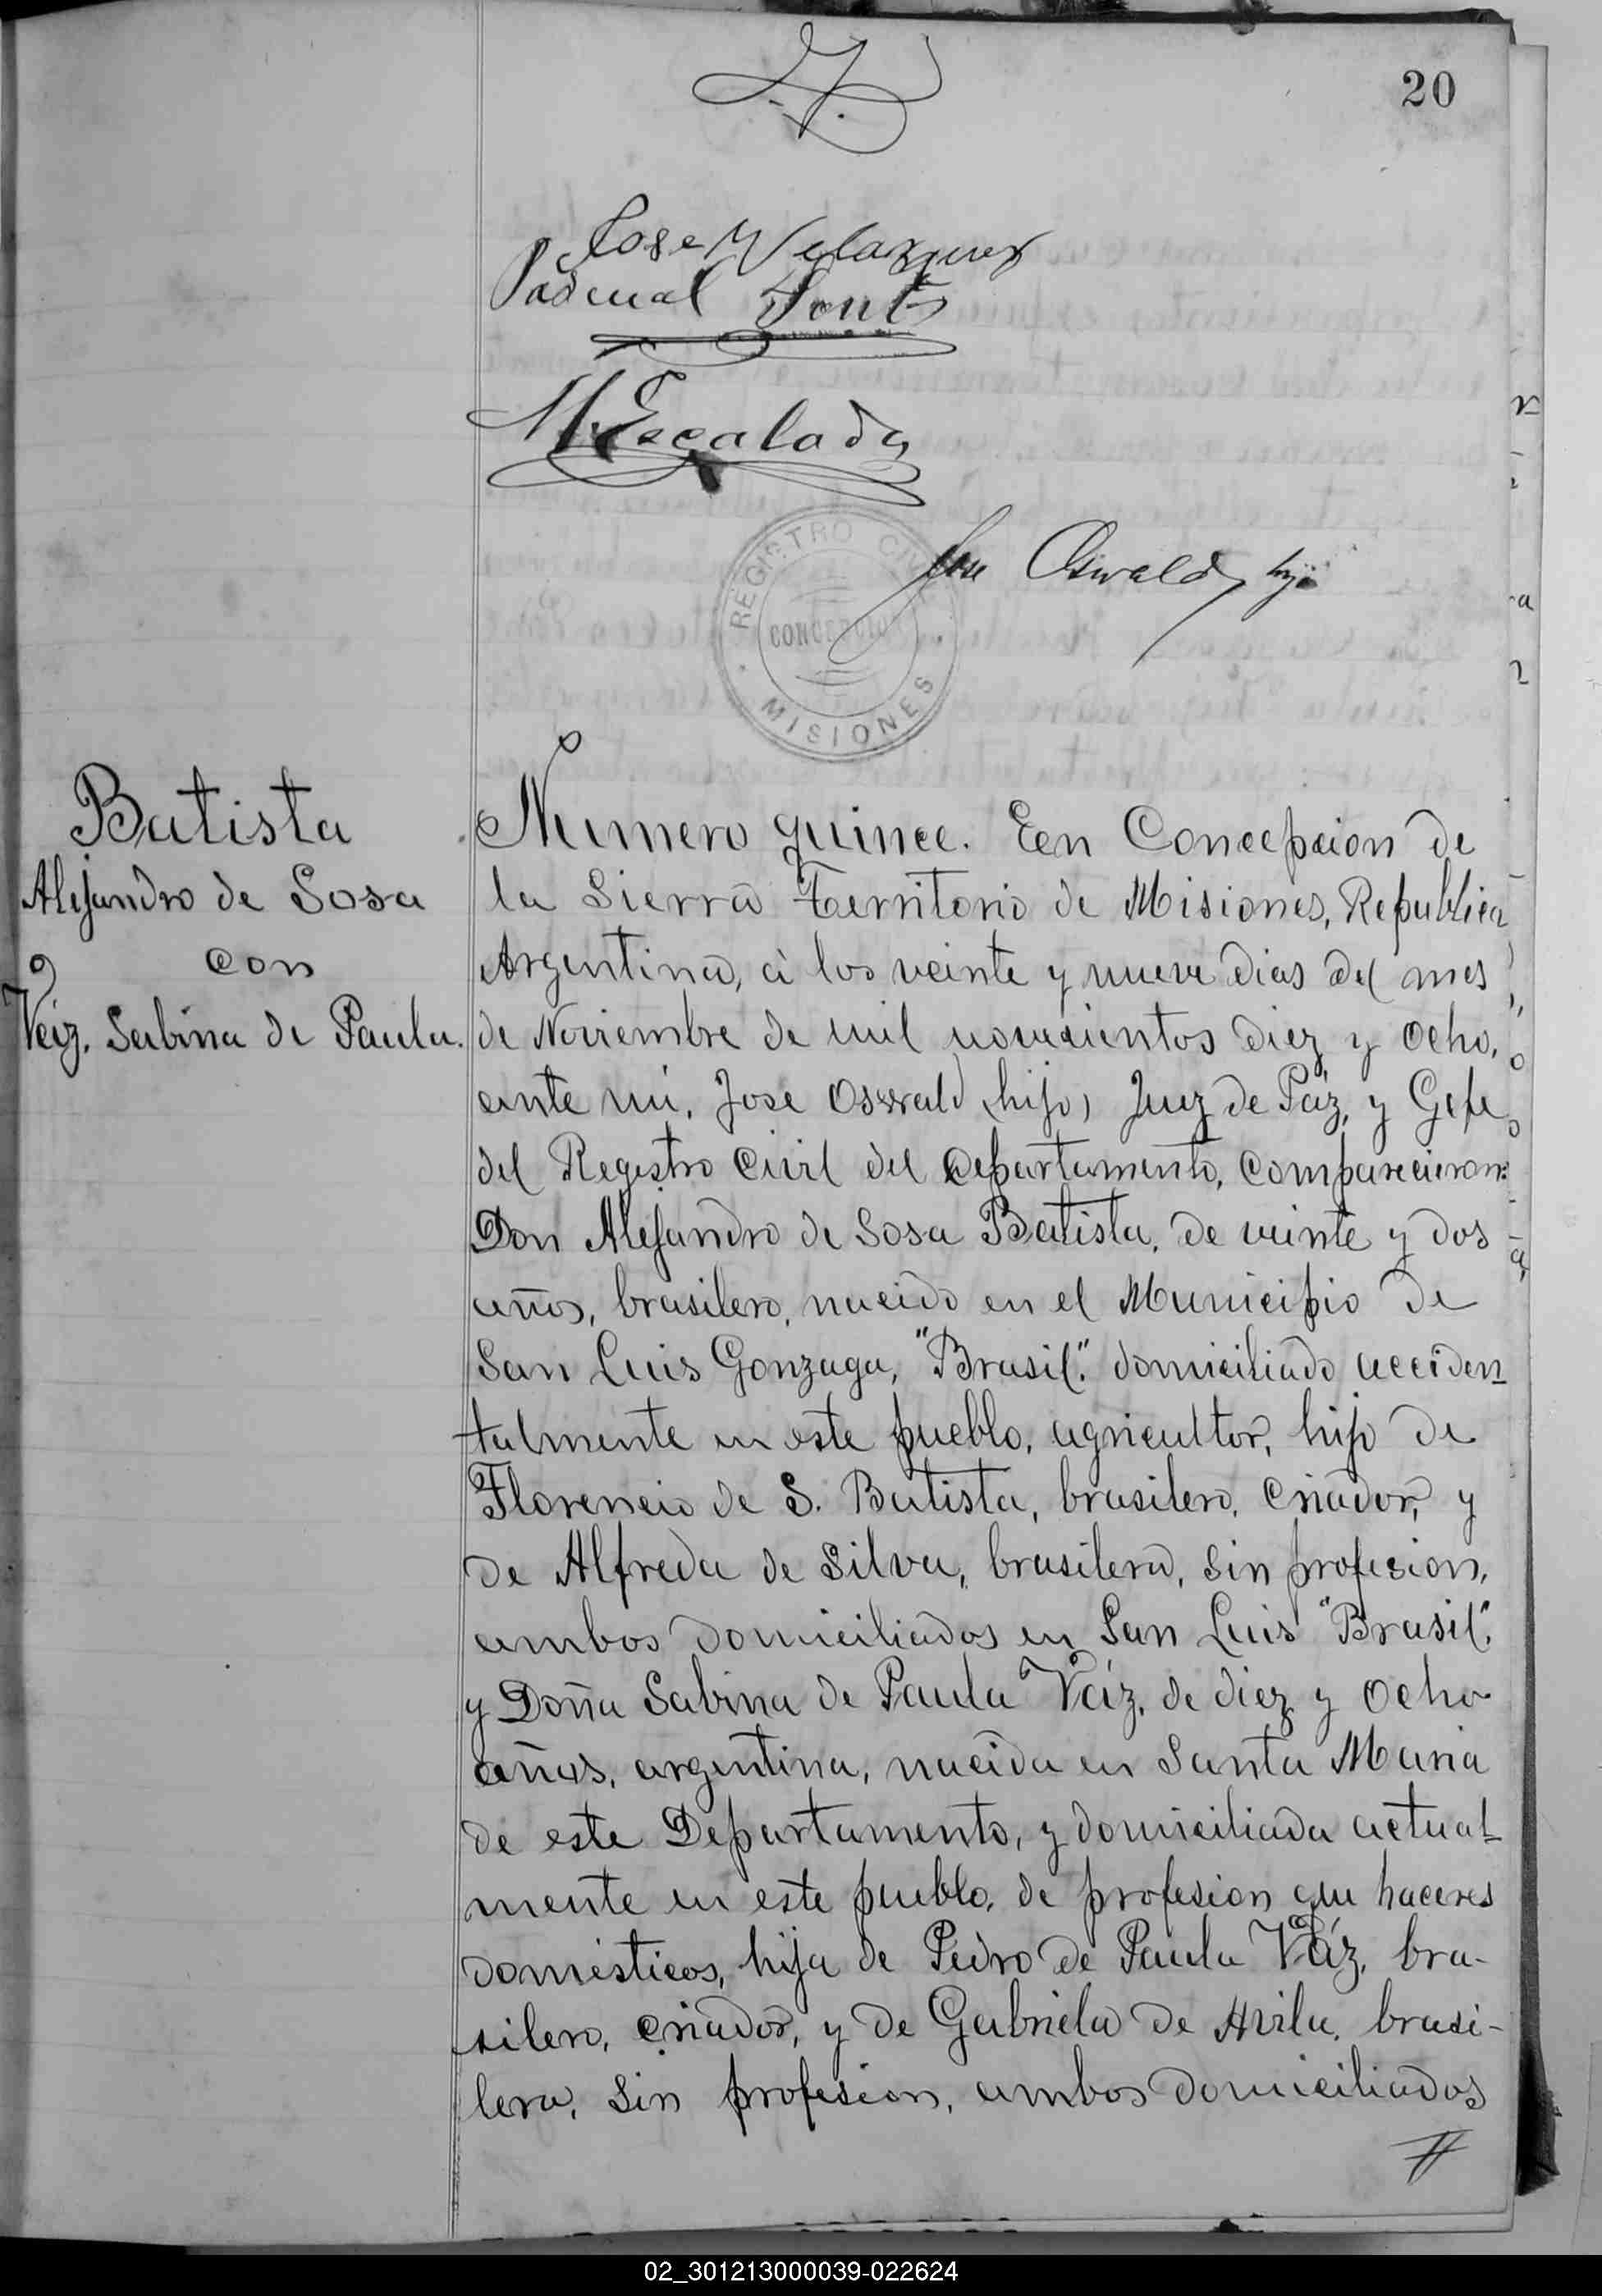 20
Jose M Velazquez
Pascual Fonts
M Escalada
REGISTRO CIVIL
CONCEPCION
MISIONES
Jose Oswald, hijo
Batista
Alejandro de Sosa
con
Veiz, Sabina de Paula.
Numero quince. Een Concepcion de
la Sierra Territorio de Misiones, Republica
Argentina, á los veinte y nueve dias del mes
de Noviembre de mil novecientos diez y ocho,
ante mi, Jose Oswald (hijo) Juez de Páz, y Gefe
del Registro Civil del Departamento, comparecieron:
Don Alejandro de Sosa Batista, de veinte y dos
años, brasilero, nacido en el Municipio de
San Luis Gonzaga, "Brasil". domiciliado acciden
talmente en este pueblo, agricultor, hijo de
Florencio de S. Batista, brasilero, criador, y
de Alfreda de Silva, brasilera, sin profesion,
ambos domiciliados en San Luis "Brasil".
y Doña Sabina de Paula Veiz, de diez y ocho
años, argentina, nacida en Santa Maria
de este Departamento, y domiciliada actual
mente en este pueblo, de profesion que haceres
domésticos, hija de Pedro de Paula Veíz, bra-
silero, criador, y de Gabriela de Avila, brasi-
lera, sin profesion, ambos domiciliados
02_301213000039-022624